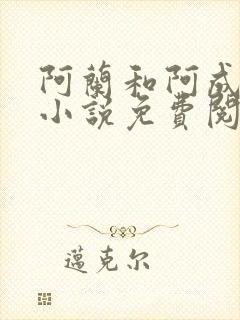 阿蘭和阿成
小説免費閱
邁克尔